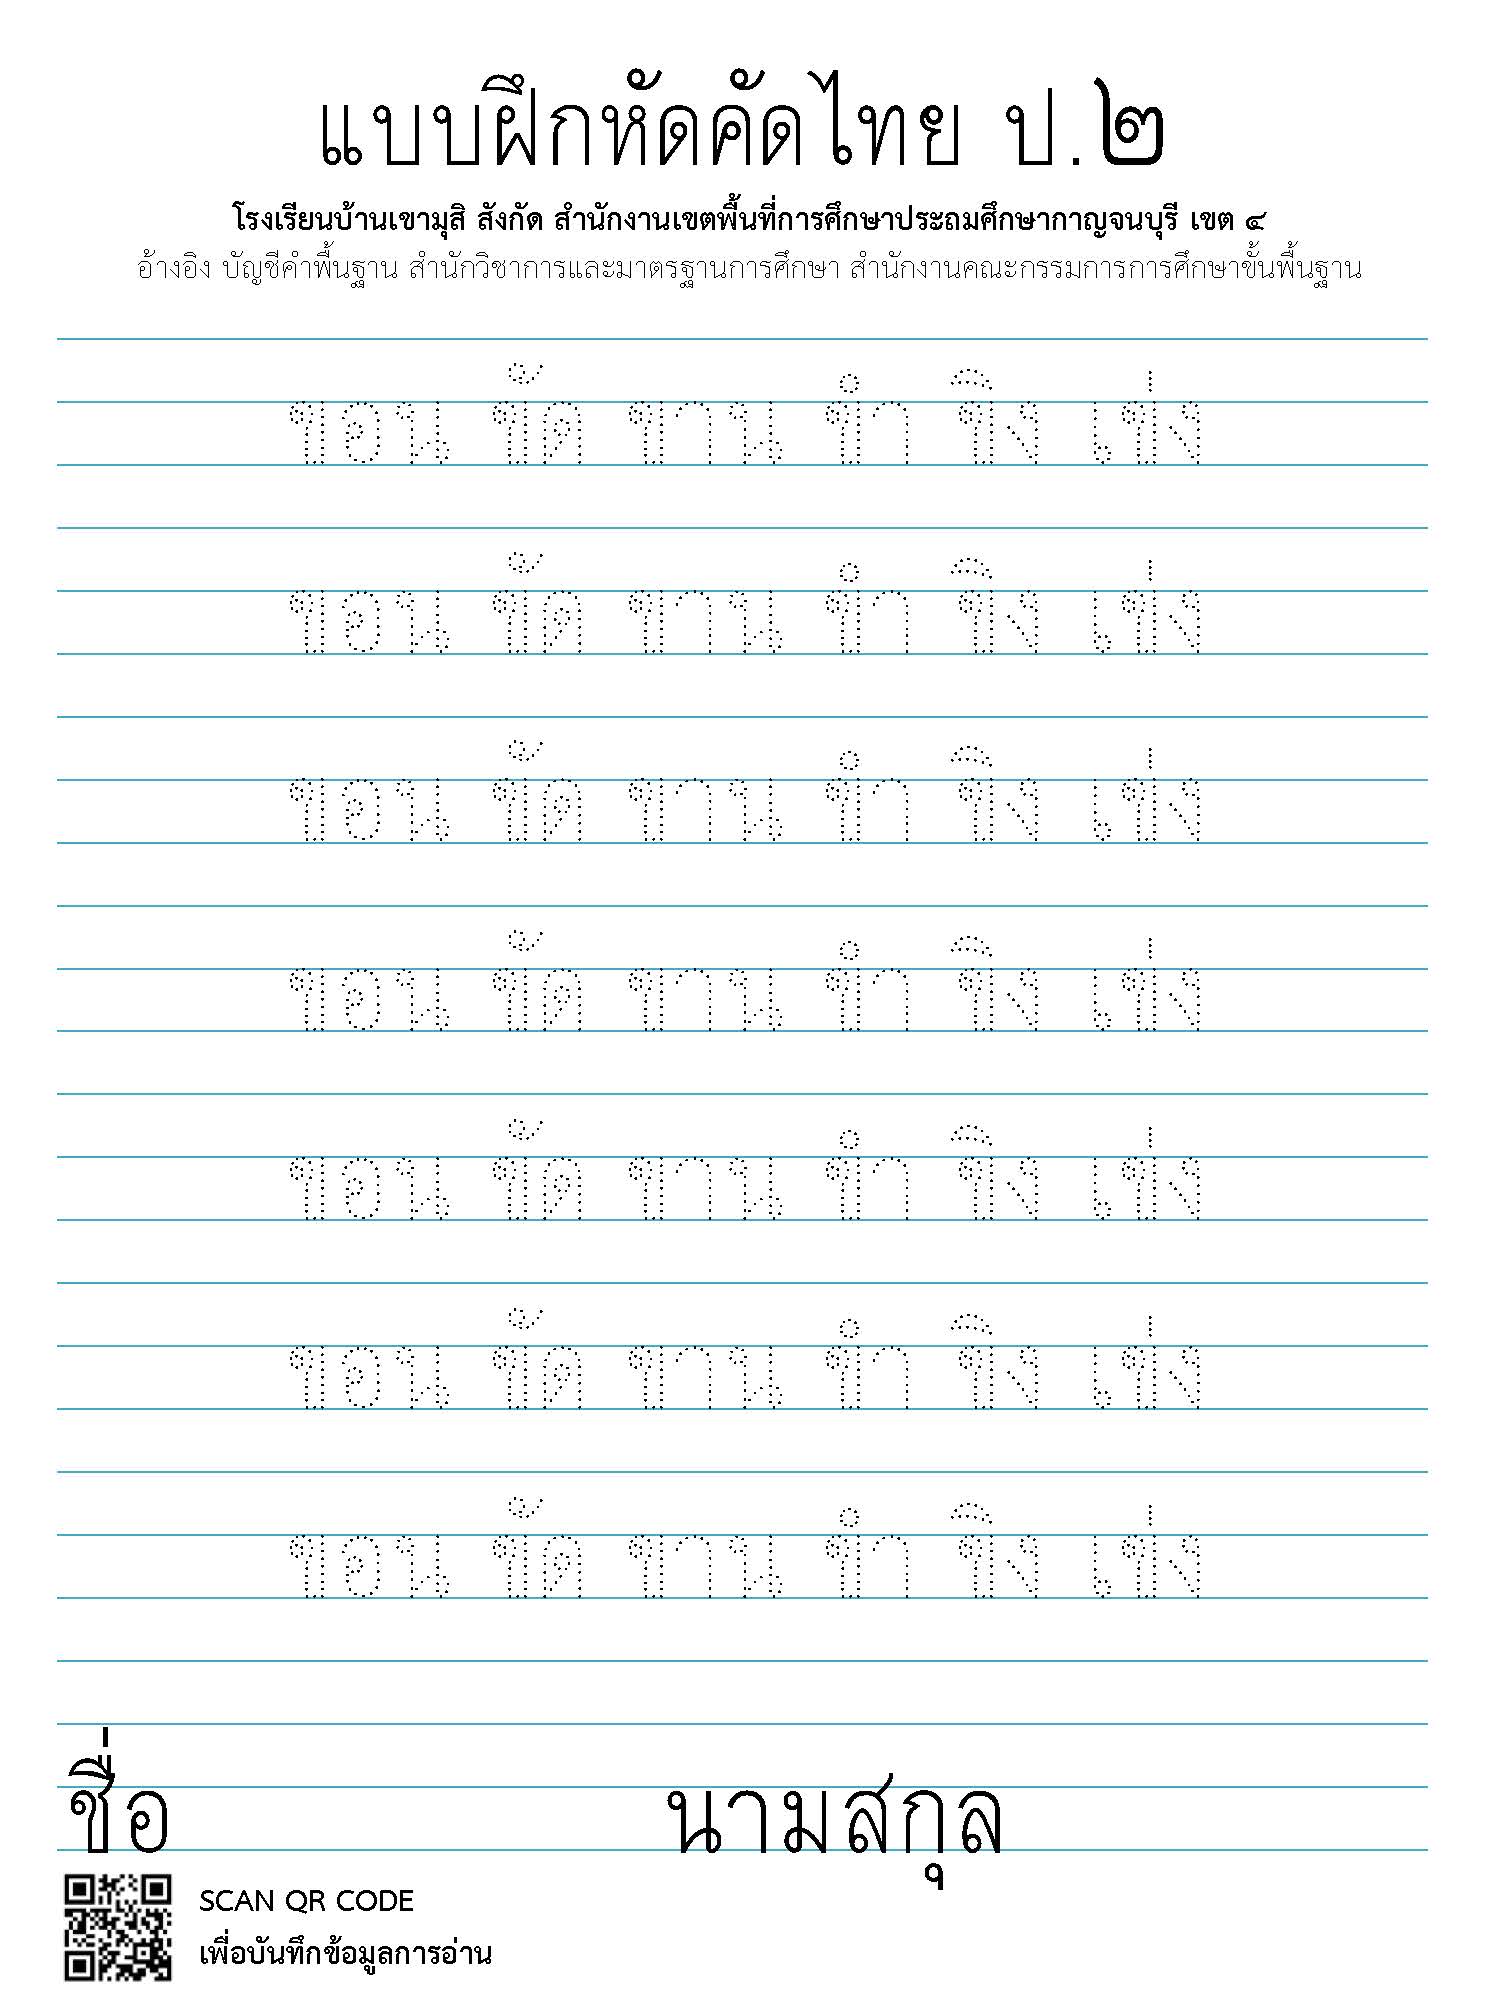 แบบฝึกหัดคัดไทย ป.๒
โรงเรียนบ้านเขามุสิ สังกัด สำนักงานเขตพื้นที่การศึกษาประถมศึกษากาญจนบุรี เขต ๔
อ้างอิง บัญชีคำพื้นฐาน สำนักวิชาการและมาตรฐานการศึกษา สำนักงานคณะกรรมการการศึกษาขั้นพื้นฐาน
ขอน ขัด ขาน ขำ ขิง เข่ง
ขอน ขัด ขาน ขำ ขิง เข่ง
ขอน ขัด ขาน ขำ ขิง เข่ง
ขอน ขัด ขาน ขำ ขิง เข่ง
ขอน ขัด ขาน ขำ ขิง เข่ง
ขอน ขัด ขาน ขำ ขิง เข่ง
ขอน ขัด ขาน ขำ ขิง เข่ง
ชื่อ นามสกุล
SCAN QR CODE
เพื่อบันทึกข้อมูลการอ่าน